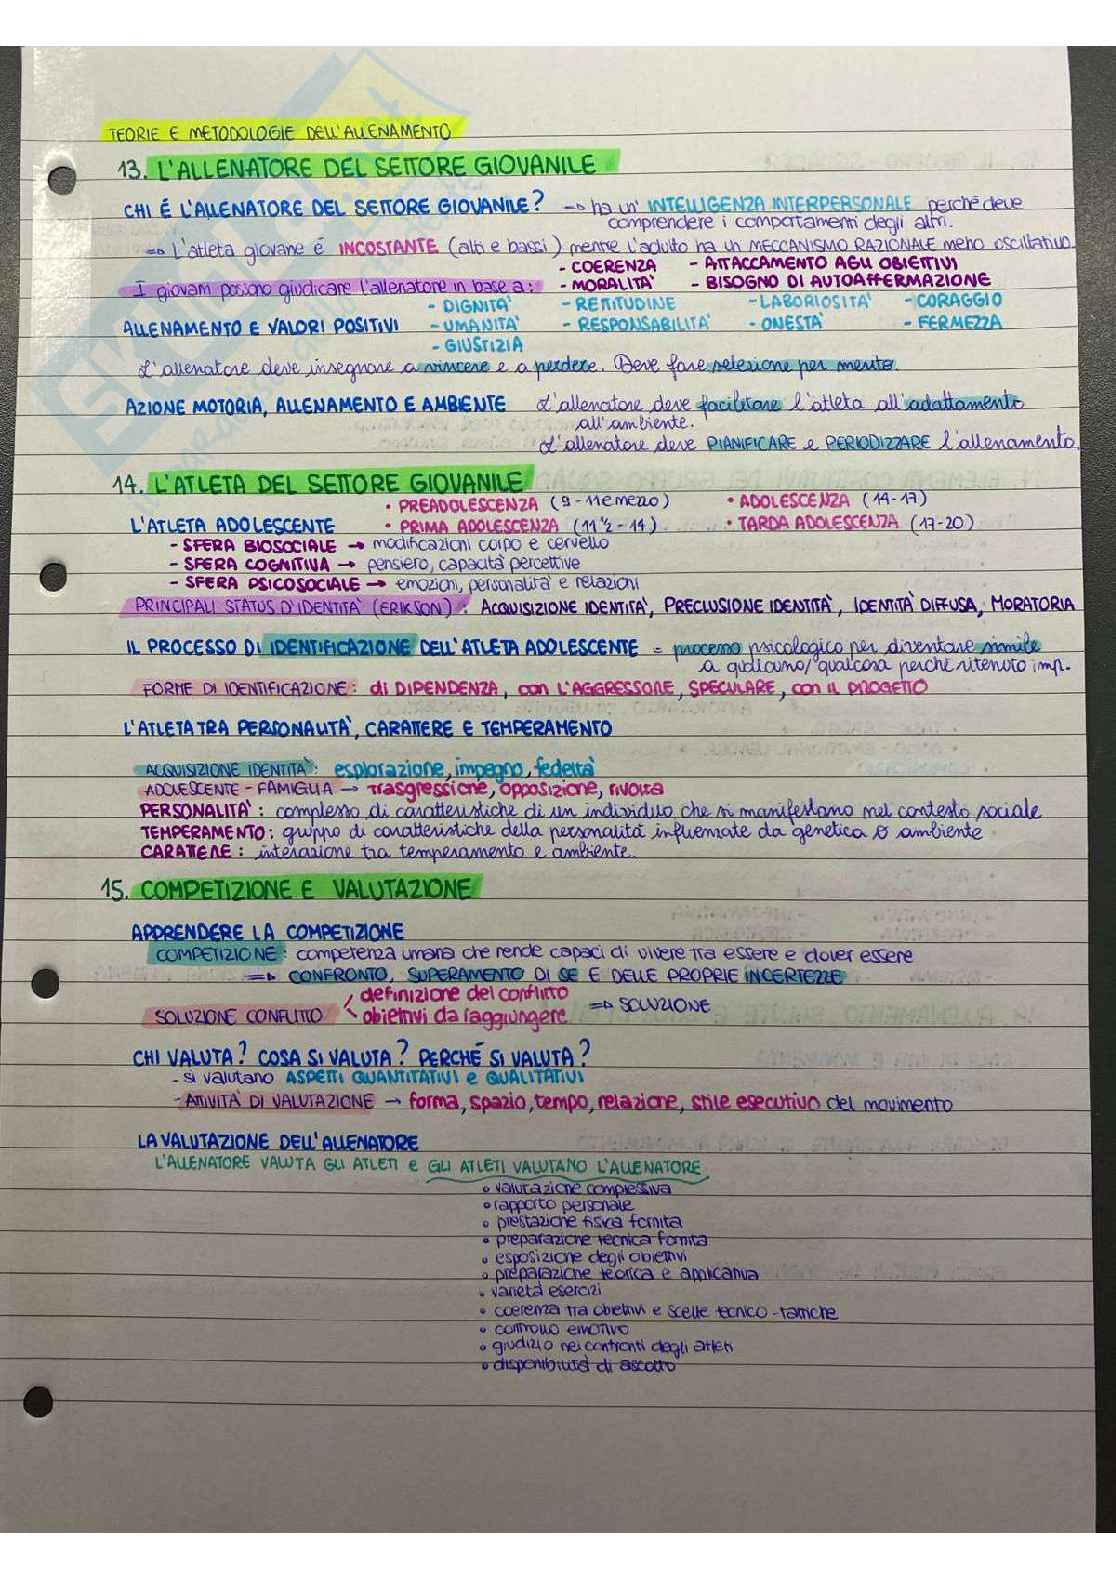 TEORIE E METODOLOGIE DELL'ALLENAMENTO
13. L'ALLENATORE DEL SETTORE GIOVANILE
CHI É L'ALLENATORE DEL SETTORE GIOVANILE? → ha un' INTELLIGENZA INTERPERSONALE perché deve
comprendere i comportamenti degli altri.
⇒ L'atleta giovane é INCOSTANTE (alti e bassi) mentre l'adulto ha un MECCANISMO RAZIONALE meno oscillativo.
- COERENZA - ATTACCAMENTO AGLI OBIETTIVI
I giovani possono giudicare l'allenatore in base a: - MORALITA' - BISOGNO DI AUTOAFFERMAZIONE
- DIGNITA' - RETTITUDINE - LABORIOSITA' - CORAGGIO
ALLENAMENTO E VALORI POSITIVI - UMANITA' - RESPONSABILITA' - ONESTA' - FERMEZZA
- GIUSTIZIA
L'allenatore deve insegnare a vincere e a perdere. Deve fare selezione per merito.
AZIONE MOTORIA, ALLENAMENTO E AMBIENTE L'allenatore deve facilitare l'atleta all'adattamento
all'ambiente.
L'allenatore deve PIANIFICARE e PERIODIZZARE l'allenamento.
14. L'ATLETA DEL SETTORE GIOVANILE
• PREADOLESCENZA (9-11 e mezzo) • ADOLESCENZA (14-17)
L'ATLETA ADOLESCENTE • PRIMA ADOLESCENZA (11½-14) • TARDA ADOLESCENZA (17-20)
- SFERA BIOSOCIALE → modificazioni corpo e cervello
- SFERA COGNITIVA → pensiero, capacità percettive
- SFERA PSICOSOCIALE → emozioni, personalità e relazioni
PRINCIPALI STATUS D'IDENTITA' (ERIKSON): ACQUISIZIONE IDENTITA', PRECLUSIONE IDENTITA', IDENTITA' DIFFUSA, MORATORIA
IL PROCESSO DI IDENTIFICAZIONE DELL'ATLETA ADOLESCENTE = processo psicologico per diventare simile
a qualcuno/qualcosa perché ritenuto imp.
FORME DI IDENTIFICAZIONE: di DIPENDENZA, con L'AGGRESSORE, SPECULARE, con IL PROGETTO
L'ATLETA TRA PERSONALITA', CARATTERE E TEMPERAMENTO
ACQUISIZIONE IDENTITA': esplorazione, impegno, fedeltà
ADOLESCENTE - FAMIGLIA → trasgressione, opposizione, rivolta
PERSONALITA': complesso di caratteristiche di un individuo che si manifestano nel contesto sociale
TEMPERAMENTO: gruppo di caratteristiche della personalità influenzate da genetica o ambiente
CARATTERE: interazione tra temperamento e ambiente.
15. COMPETIZIONE E VALUTAZIONE
APPRENDERE LA COMPETIZIONE
COMPETIZIONE: competenza umana che rende capaci di vivere tra essere e dover essere
⇒ CONFRONTO, SUPERAMENTO DI SE E DELLE PROPRIE INCERTEZZE
definizione del conflitto
SOLUZIONE CONFLITTO obiettivi da raggiungere ⇒ SOLUZIONE
CHI VALUTA? COSA SI VALUTA? PERCHÉ SI VALUTA?
- si valutano ASPETTI QUANTITATIVI e QUALITATIVI
- ATTIVITA' DI VALUTAZIONE → forma, spazio, tempo, relazione, stile esecutivo del movimento
LA VALUTAZIONE DELL'ALLENATORE
L'ALLENATORE VALUTA GLI ATLETI e GLI ATLETI VALUTANO L'ALLENATORE
• valutazione complessiva
• rapporto personale
• prestazione fisica fornita
• preparazione tecnica fornita
• esposizione degli obiettivi
• preparazione teorica e applicativa
• varietà esercizi
• coerenza tra obiettivi e scelte tecnico-tattiche
• controllo emotivo
• giudizio nei confronti degli atleti
• disponibilità di ascolto